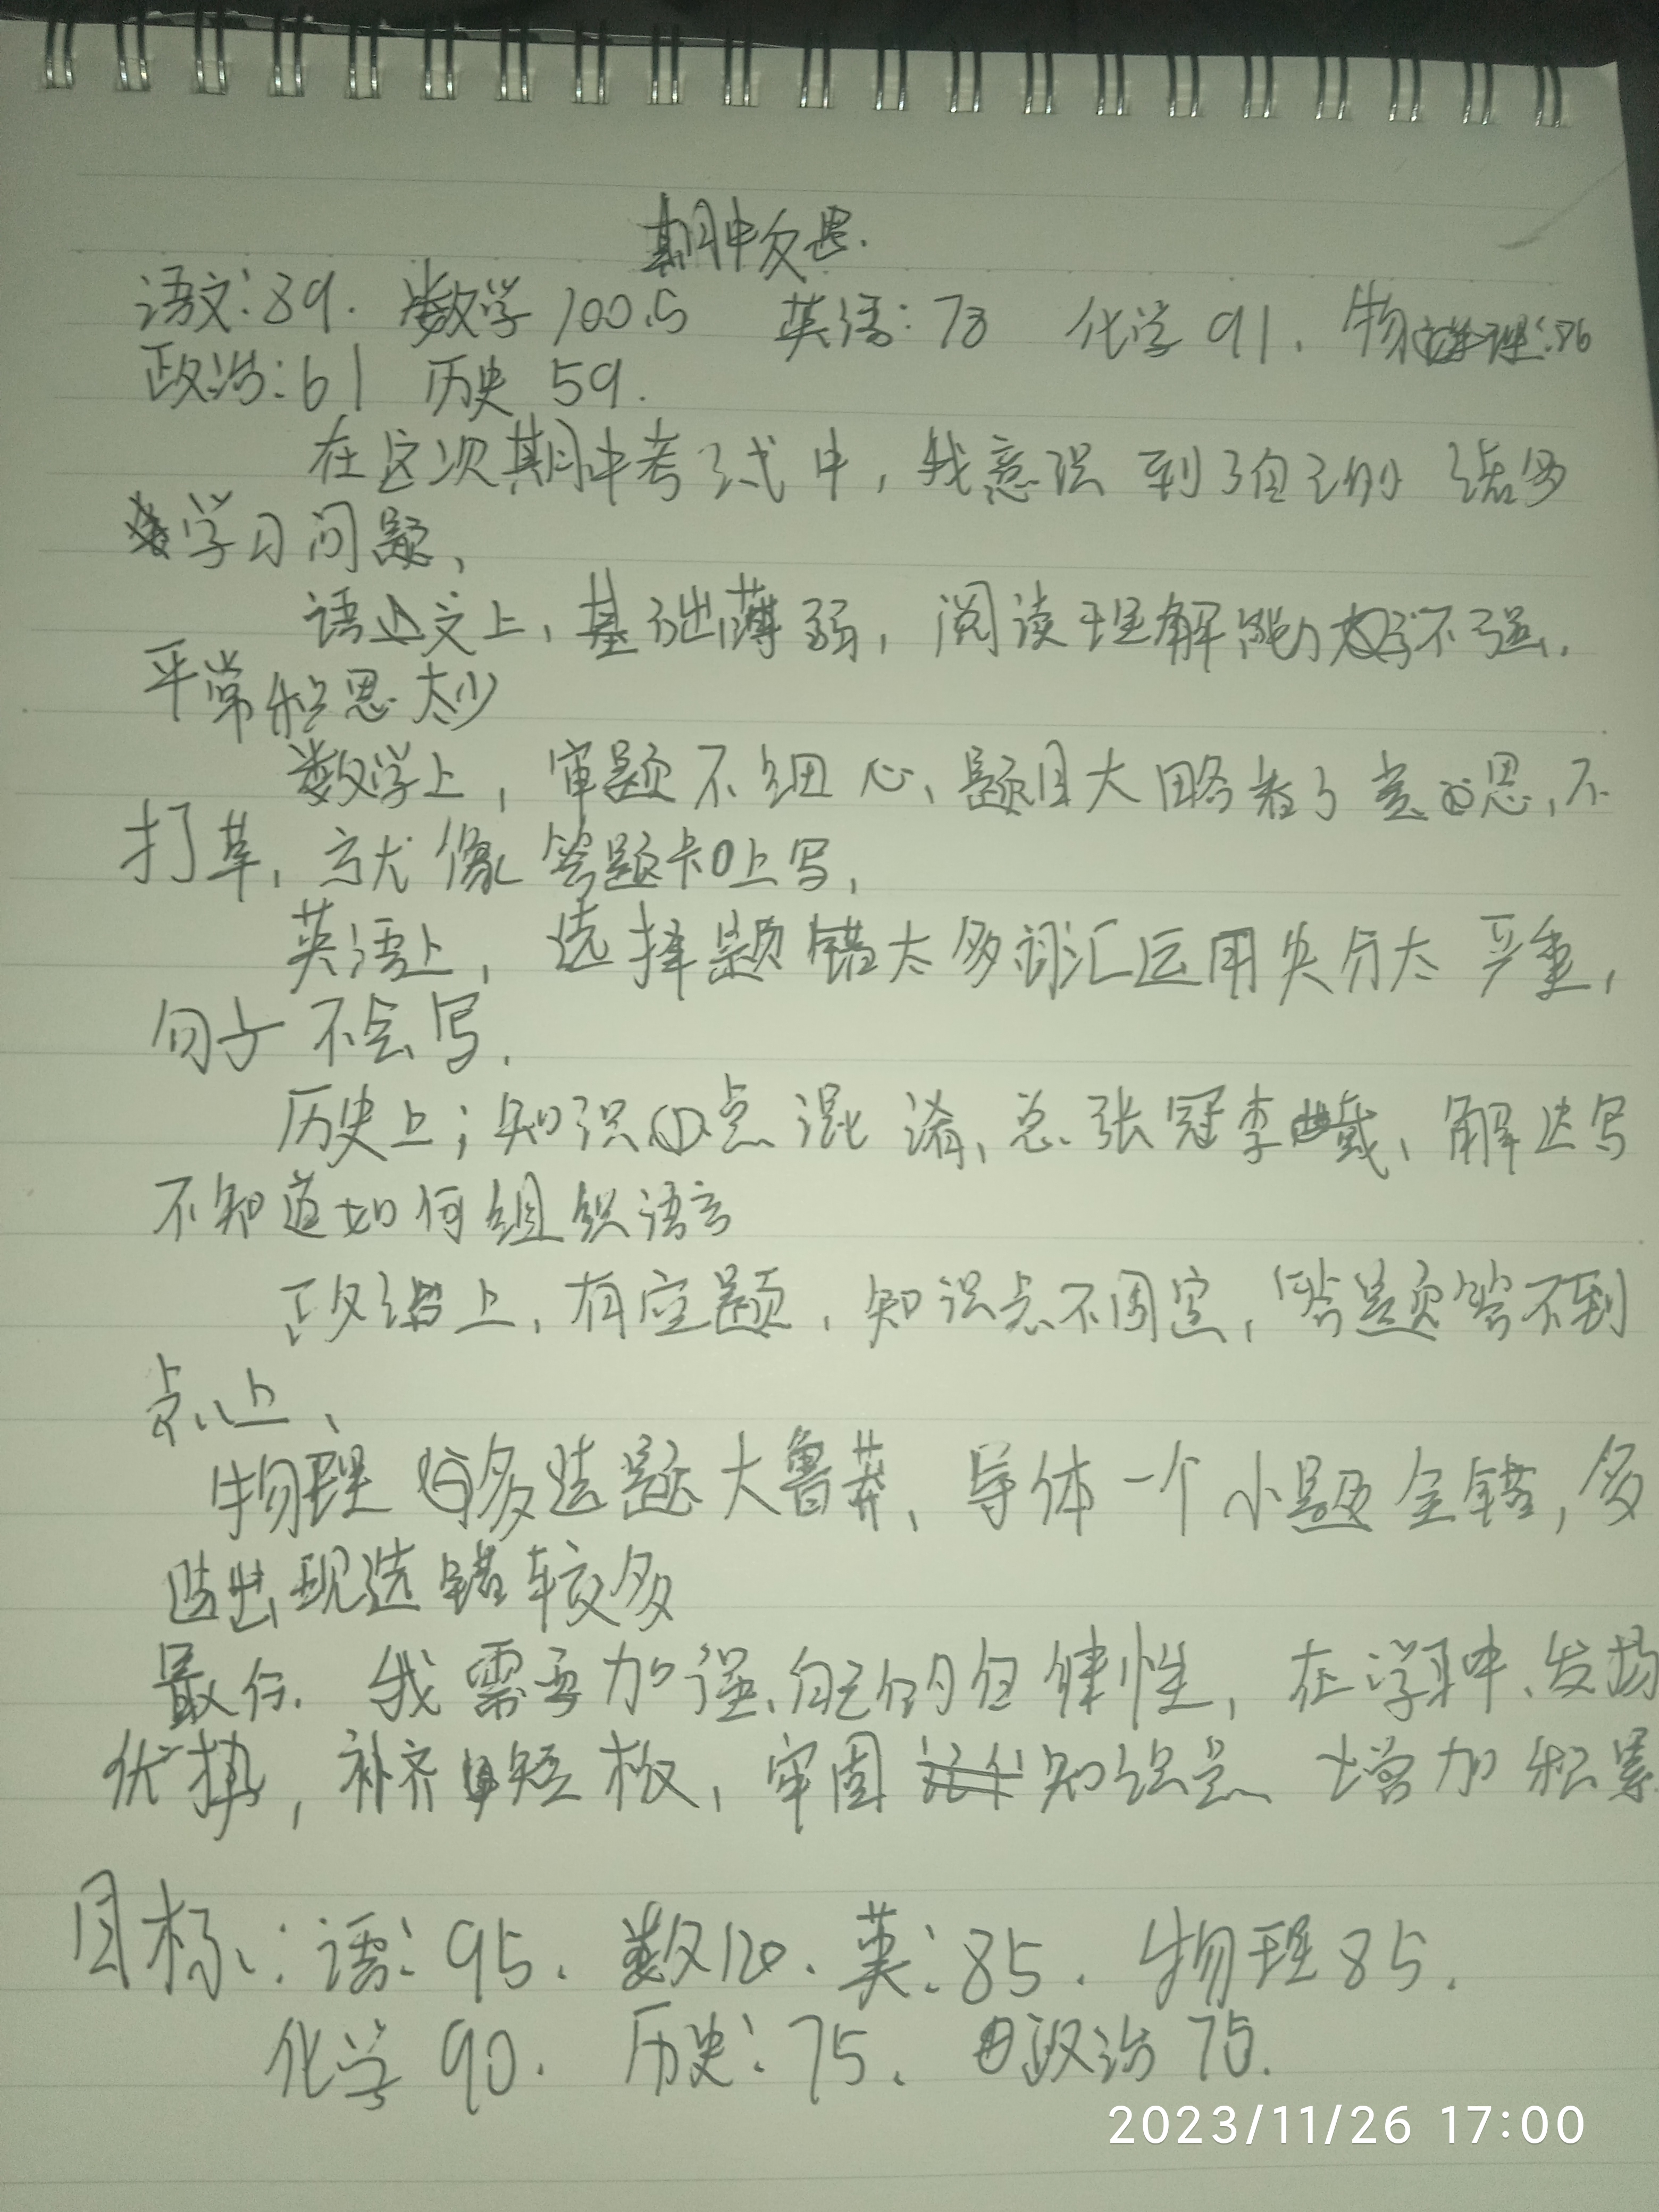 期中反思.
语文:89. 数学 100.5 英语:73 化学 91. 物理:86
政治:61 历史 59.
在这次期中考试中,我意识到了自己的诸多
学习问题,
语文上,基础薄弱,阅读理解能力不强.
平常积思太少
数学上,审题不细心、题目大略看了意思,不
打草,就像答题卡上写,
英语上,选择题错太多词汇运用失分太严重,
句子不会写.
历史上;知识点混淆,总张冠李戴、解达写
不知道如何组织语言
政治上,有空题,知识点不固定,答题答不到
点上、
物理 多选题大鲁莽、导体一个小题全错,多
选出现选错较多
最后. 我需要加强自己的自律性,在学习中、发扬
优势,补齐短板,牢固知识点 增加积累
目标:语:95. 数120. 英:85. 物理85.
化学90. 历史:75. 政治75.
2023/11/26 17:00